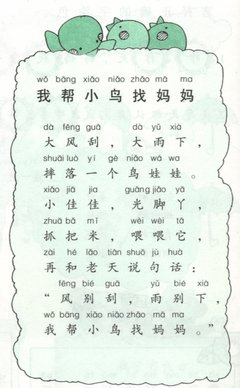 wǒ bāng xiǎo niǎo zhǎo mā ma
我帮小鸟找妈妈
dà fēng guā dà yǔ xià
大风刮，大雨下，
shuāi luò yí gè niǎo wá wa
摔落一个鸟娃娃。
xiǎo jiā jia guāng jiǎo yā
小佳佳，光脚丫，
zhuā bǎ mǐ wèi wèi tā
抓把米，喂喂它，
zài hé lǎo tiān shuō jù huà
再和老天说句话：
fēng bié guā yǔ bié xià
“风别刮，雨别下，
wǒ bāng xiǎo niǎo zhǎo mā ma
我帮小鸟找妈妈。”